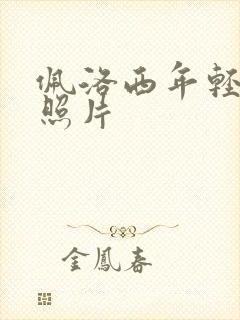 佩洛西年轻
照片
金鳳春